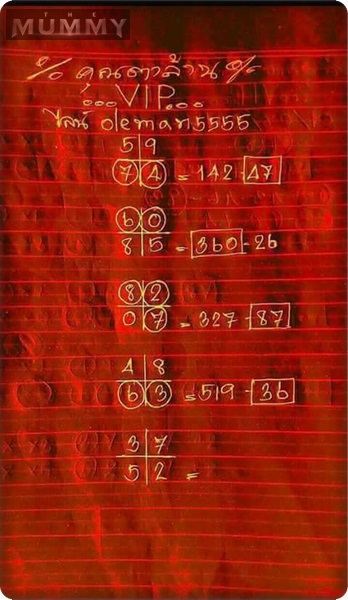 THE
MUMMY
% คุณตาล้าน %
...VIP...
ไลน์ oleman5555
5 9
7 4 = 142-47
6 0
8 5 = 360-26
8 2
0 7 = 327-87
4 8
6 3 = 519-36
3 7
5 2 =